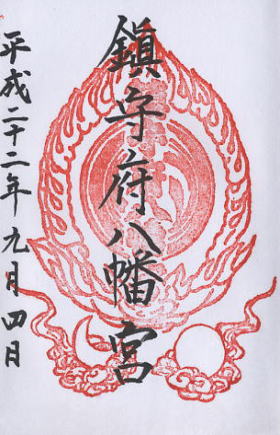 鎮守府八幡宮
平成二十二年九月四日